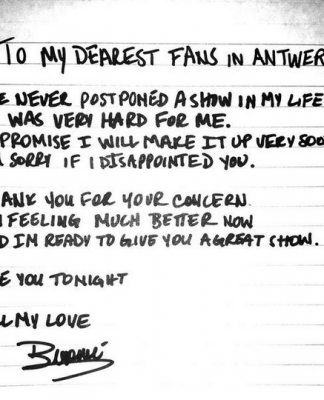 TO MY DEAREST FANS IN ANTWER
E NEVER POSTPONED A SHOW IN MY LIFE
WAS VERY HARD FOR ME.
PROMISE I WILL MAKE IT UP VERY SOO
SORRY IF I DISAPPOINTED YOU.
ANK YOU FOR YOUR CONCERN
FEELING MUCH BETTER NOW
D IM READY TO GIVE YOU A GREAT SHOW.
E YOU TONIGHT
L MY LOVE